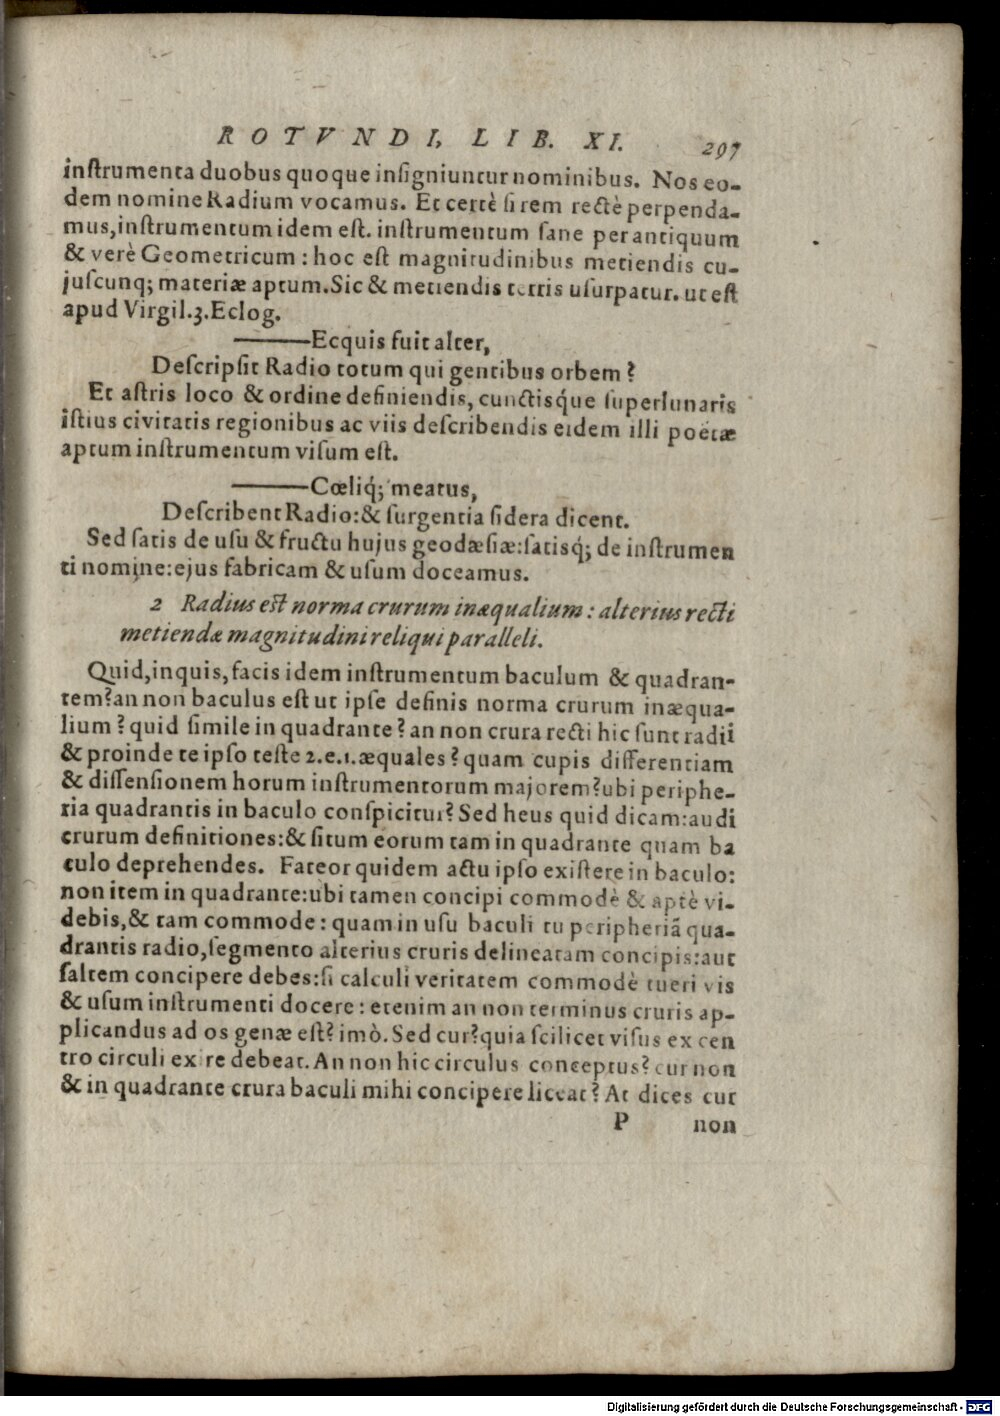 ROTVNDI, LIB. XI. 297
instrumenta duobus quoque insigniuntur nominibus. Nos eo-
dem nomine Radium vocamus. Et certè si rem rectè perpenda-
mus, instrumentum idem est. instrumentum sane perantiquum
& verè Geometricum: hoc est magnitudinibus metiendis cu-
juscunq; materiæ aptum. Sic & metiendis terris usurpatur. ut est
apud Virgil. 3. Eclog.
———Ecquis fuit alter,
Descripsit Radio totum qui gentibus orbem?
Et astris loco & ordine definiendis, cunctisq́ue superlunaris
istius civitatis regionibus ac viis describendis eidem illi poetæ
aptum instrumentum visum est.
———Cœliq́; meatus,
Describent Radio: & surgentia sidera dicent.
Sed satis de usu & fructu hujus geodæsiæ: satisq́; de instrumen
ti nomine: ejus fabricam & usum doceamus.
2 Radius est norma crurum inæqualium: alterius recti
metiendæ magnitudini reliqui paralleli.
Quid, inquis, facis idem instrumentum baculum & quadran-
tem? an non baculus est ut ipse definis norma crurum inæqua-
lium? quid simile in quadrante? an non crura recti hic sunt radii
& proinde te ipso teste 2. e. 1. æquales? quam cupis differentiam
& dissensionem horum instrumentorum majorem? ubi periphe-
ria quadrantis in baculo conspicitur? Sed heus quid dicam: audi
crurum definitiones: & situm eorum tam in quadrante quam ba
culo deprehendes. Fateor quidem actu ipso existere in baculo:
non item in quadrante: ubi tamen concipi commodè & aptè vi-
debis, & tam commode: quam in usu baculi tu peripheriã qua-
drantis radio, segmento alterius cruris delineatam concipis: aut
saltem concipere debes: si calculi veritatem commodè tueri vis
& usum instrumenti docere: etenim an non terminus cruris ap-
plicandus ad os genæ est? imò. Sed cur? quia scilicet visus ex cen
tro circuli exire debeat. An non hic circulus conceptus? cur non
& in quadrante crura baculi mihi concipere liceat? At dices cur
P non
Digitalisierung gefördert durch die Deutsche Forschungsgemeinschaft - DFG